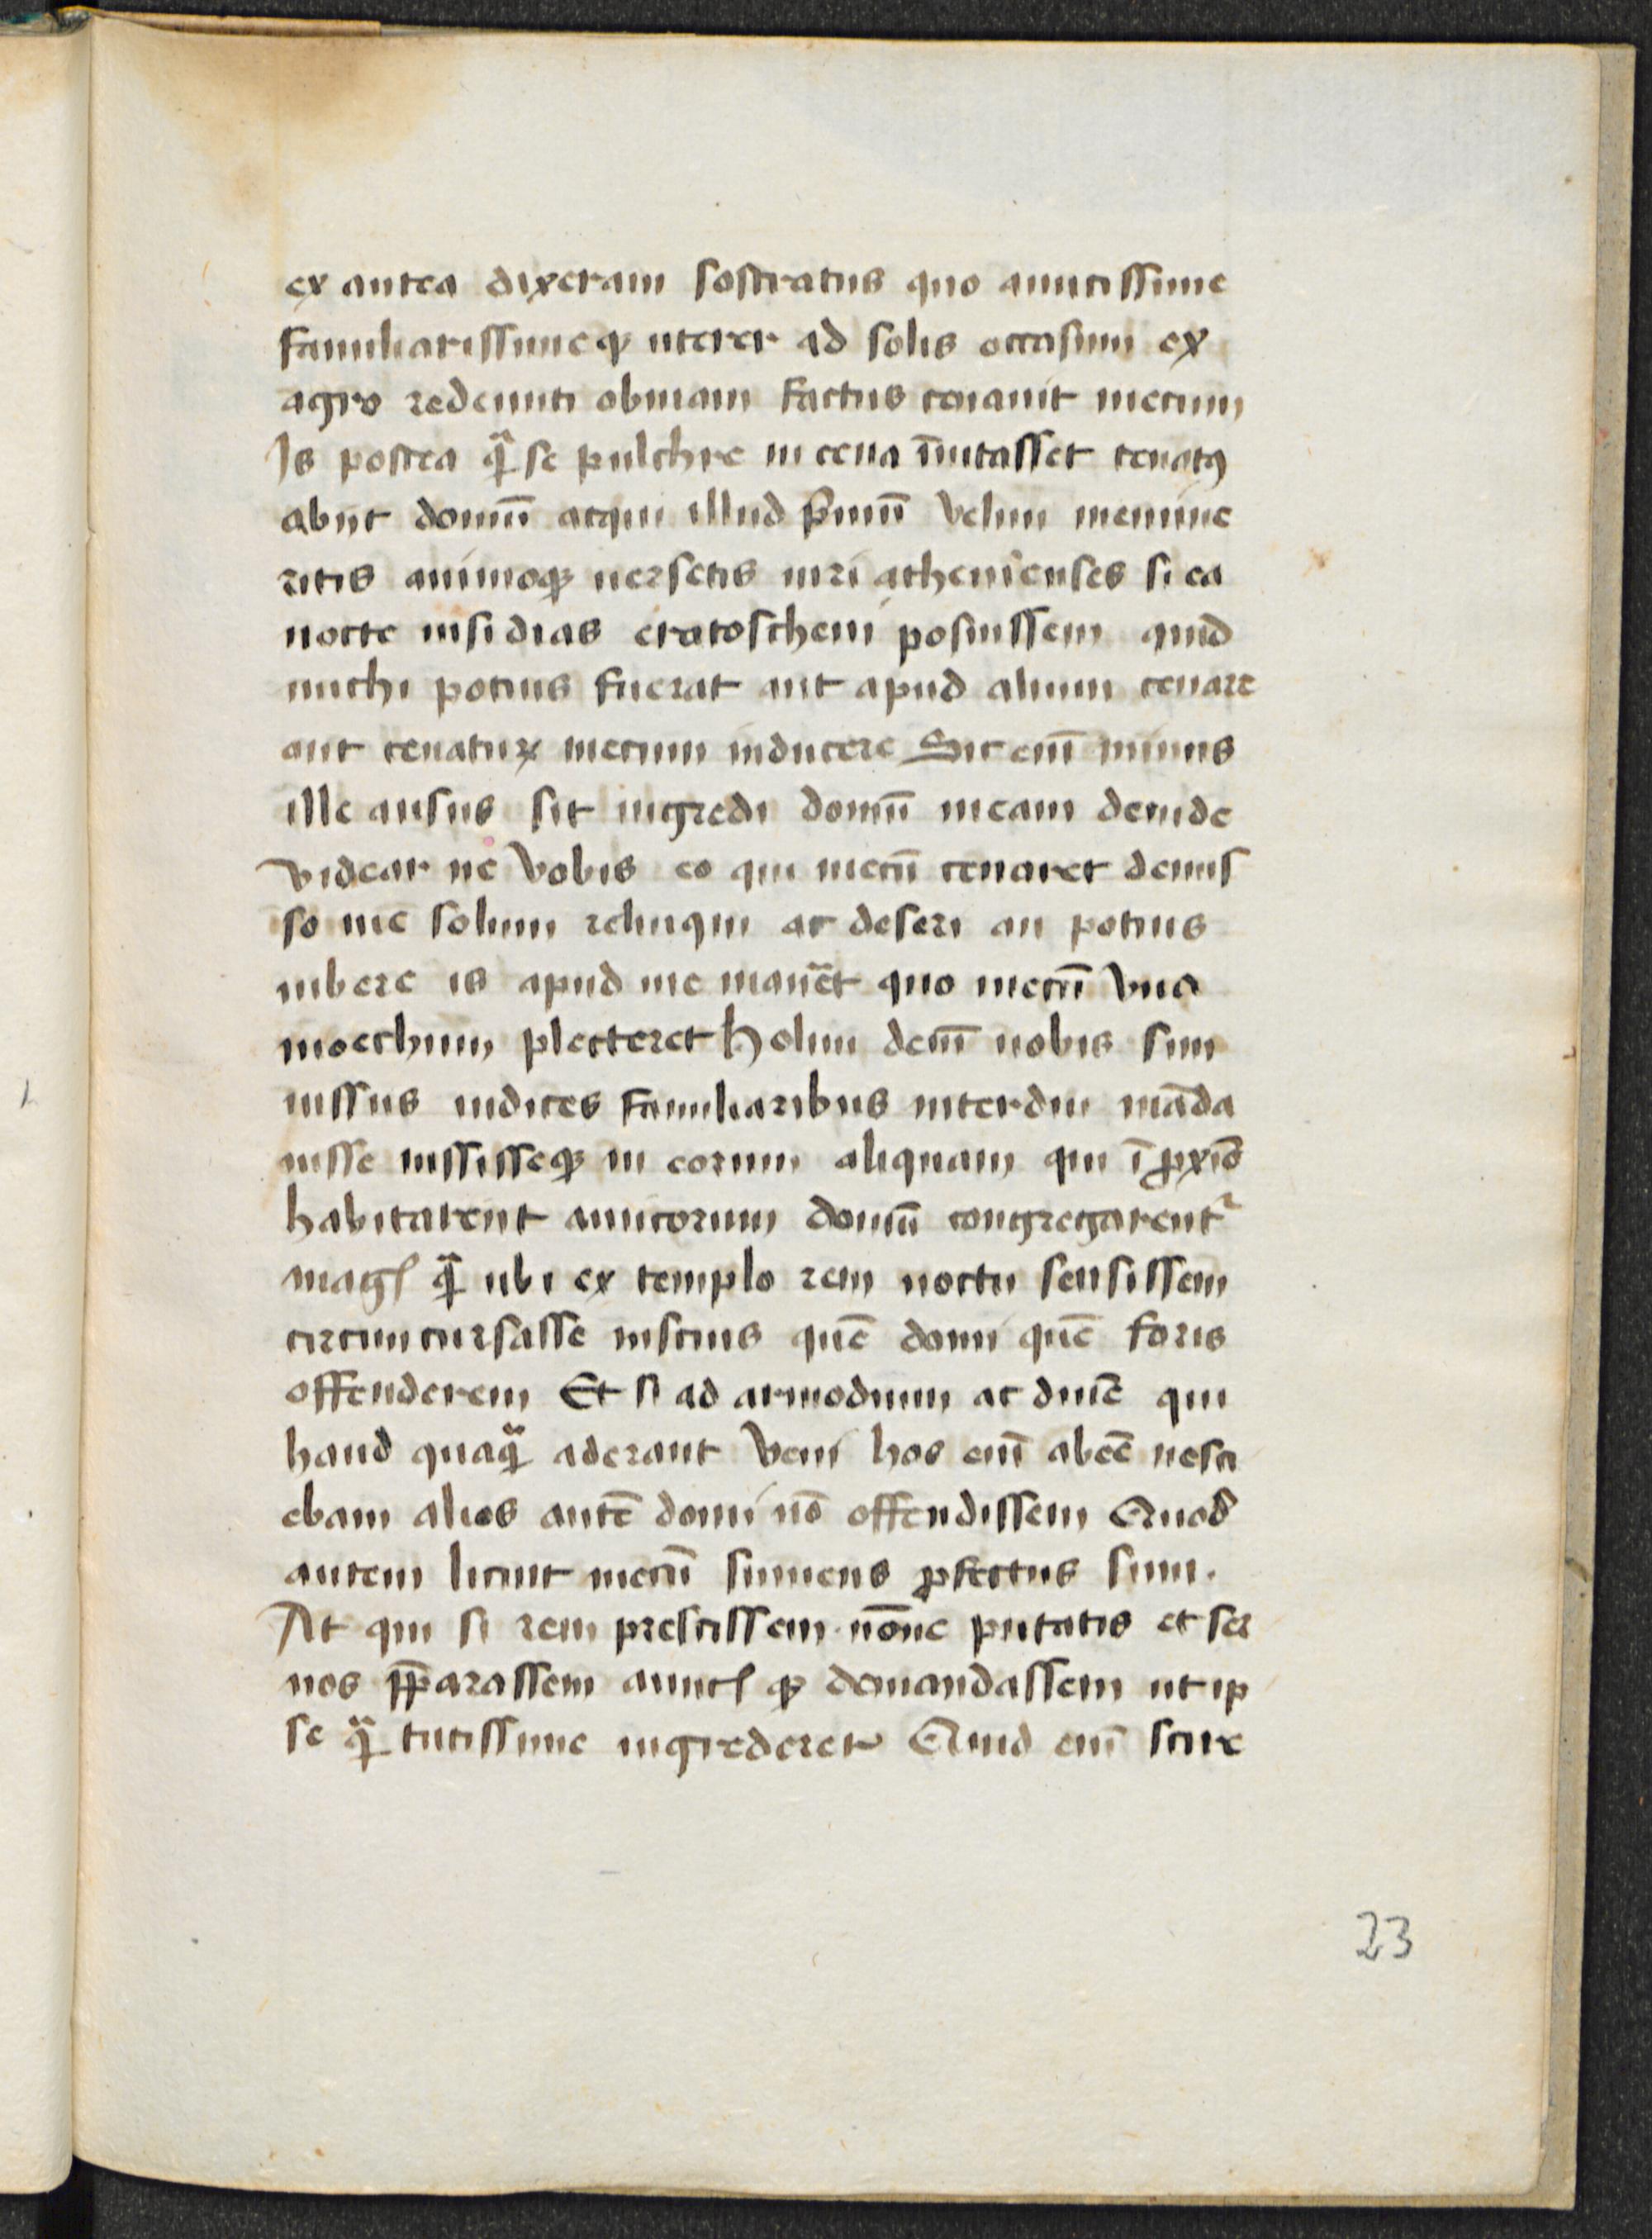 ex antea dixeram sostratus quo amicissime
familiarissimeqꝫ uterer ad solis occasum ex
agro redeunti obuiam factus cenauit mecum
Is postea qᷓ se pulchre in cena īuitasset cenatqꝫ
abijt domū atqui illud pͥmū velim memine
ritis animoqꝫ uersetis uiri athenienses si ea
nocte insidias eratostheni posuissem quid
michi potius fuerat aut apud alium cenare
aut cenaturꝝ mecum inducere Sic enī minus
ille ausus sit ingredi domū meam deinde
videar ne vobis eo qui mecū cenaret demis
so me solum relinqui ac deseri an potius
iubere is apud me manēt quo mecū vna
moechum plecteret Nolim deniͫ nobis sim
uissus iudices familiaribus interdiu māda
uisse iussisseqꝫ in eorum aliquam qui ī ꝓxīo
habitarent amicorum domū congregarentᷣ
magꝭ qᷓ ubi ex templo rem noctu sensissem
circumcursasse inscius quē domi quē foris
offenderem Et si ad armodium ac diuē qui
haud quaqᷓ aderant veni hos enī abeē nesci
ebam alios autē domi nō offendissem Quod
autem licuit mecū sumens ꝓfectus sum.
At qui si rem prescissem nōne putatis et ser
uos p̄pararassem amicꝭ qꝫ demandassem ut ip
se qᷓ tutissime ingrederer Quid enī scire
23